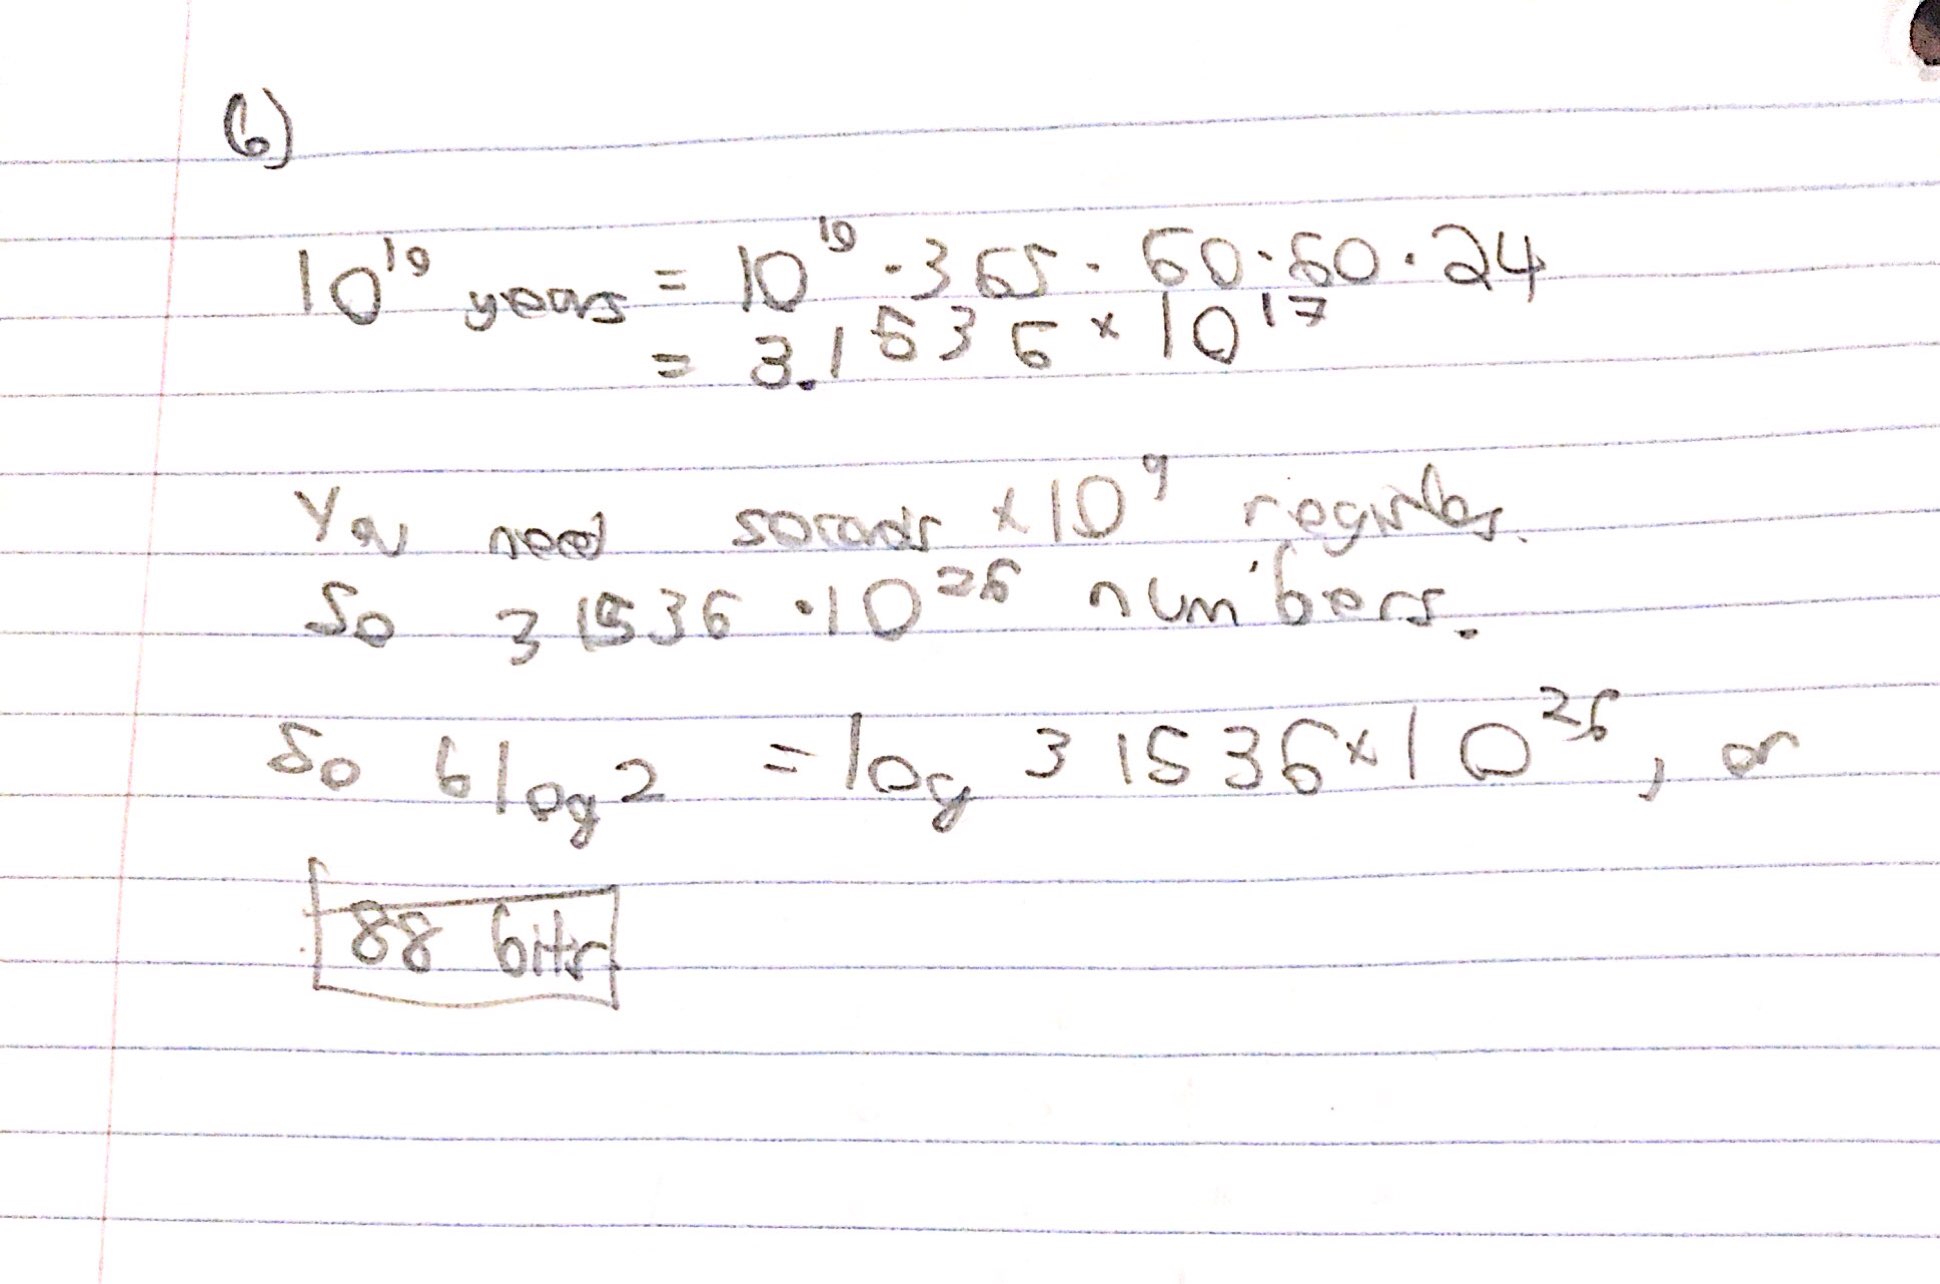 6)
10^10 years = 10^10 · 365 · 60 · 60 · 24
= 3.1536 × 10^17
You need seconds × 10^9 registers.
So 31536 · 10^26 numbers.
So b log 2 = log 31536 × 10^26, or
88 bits